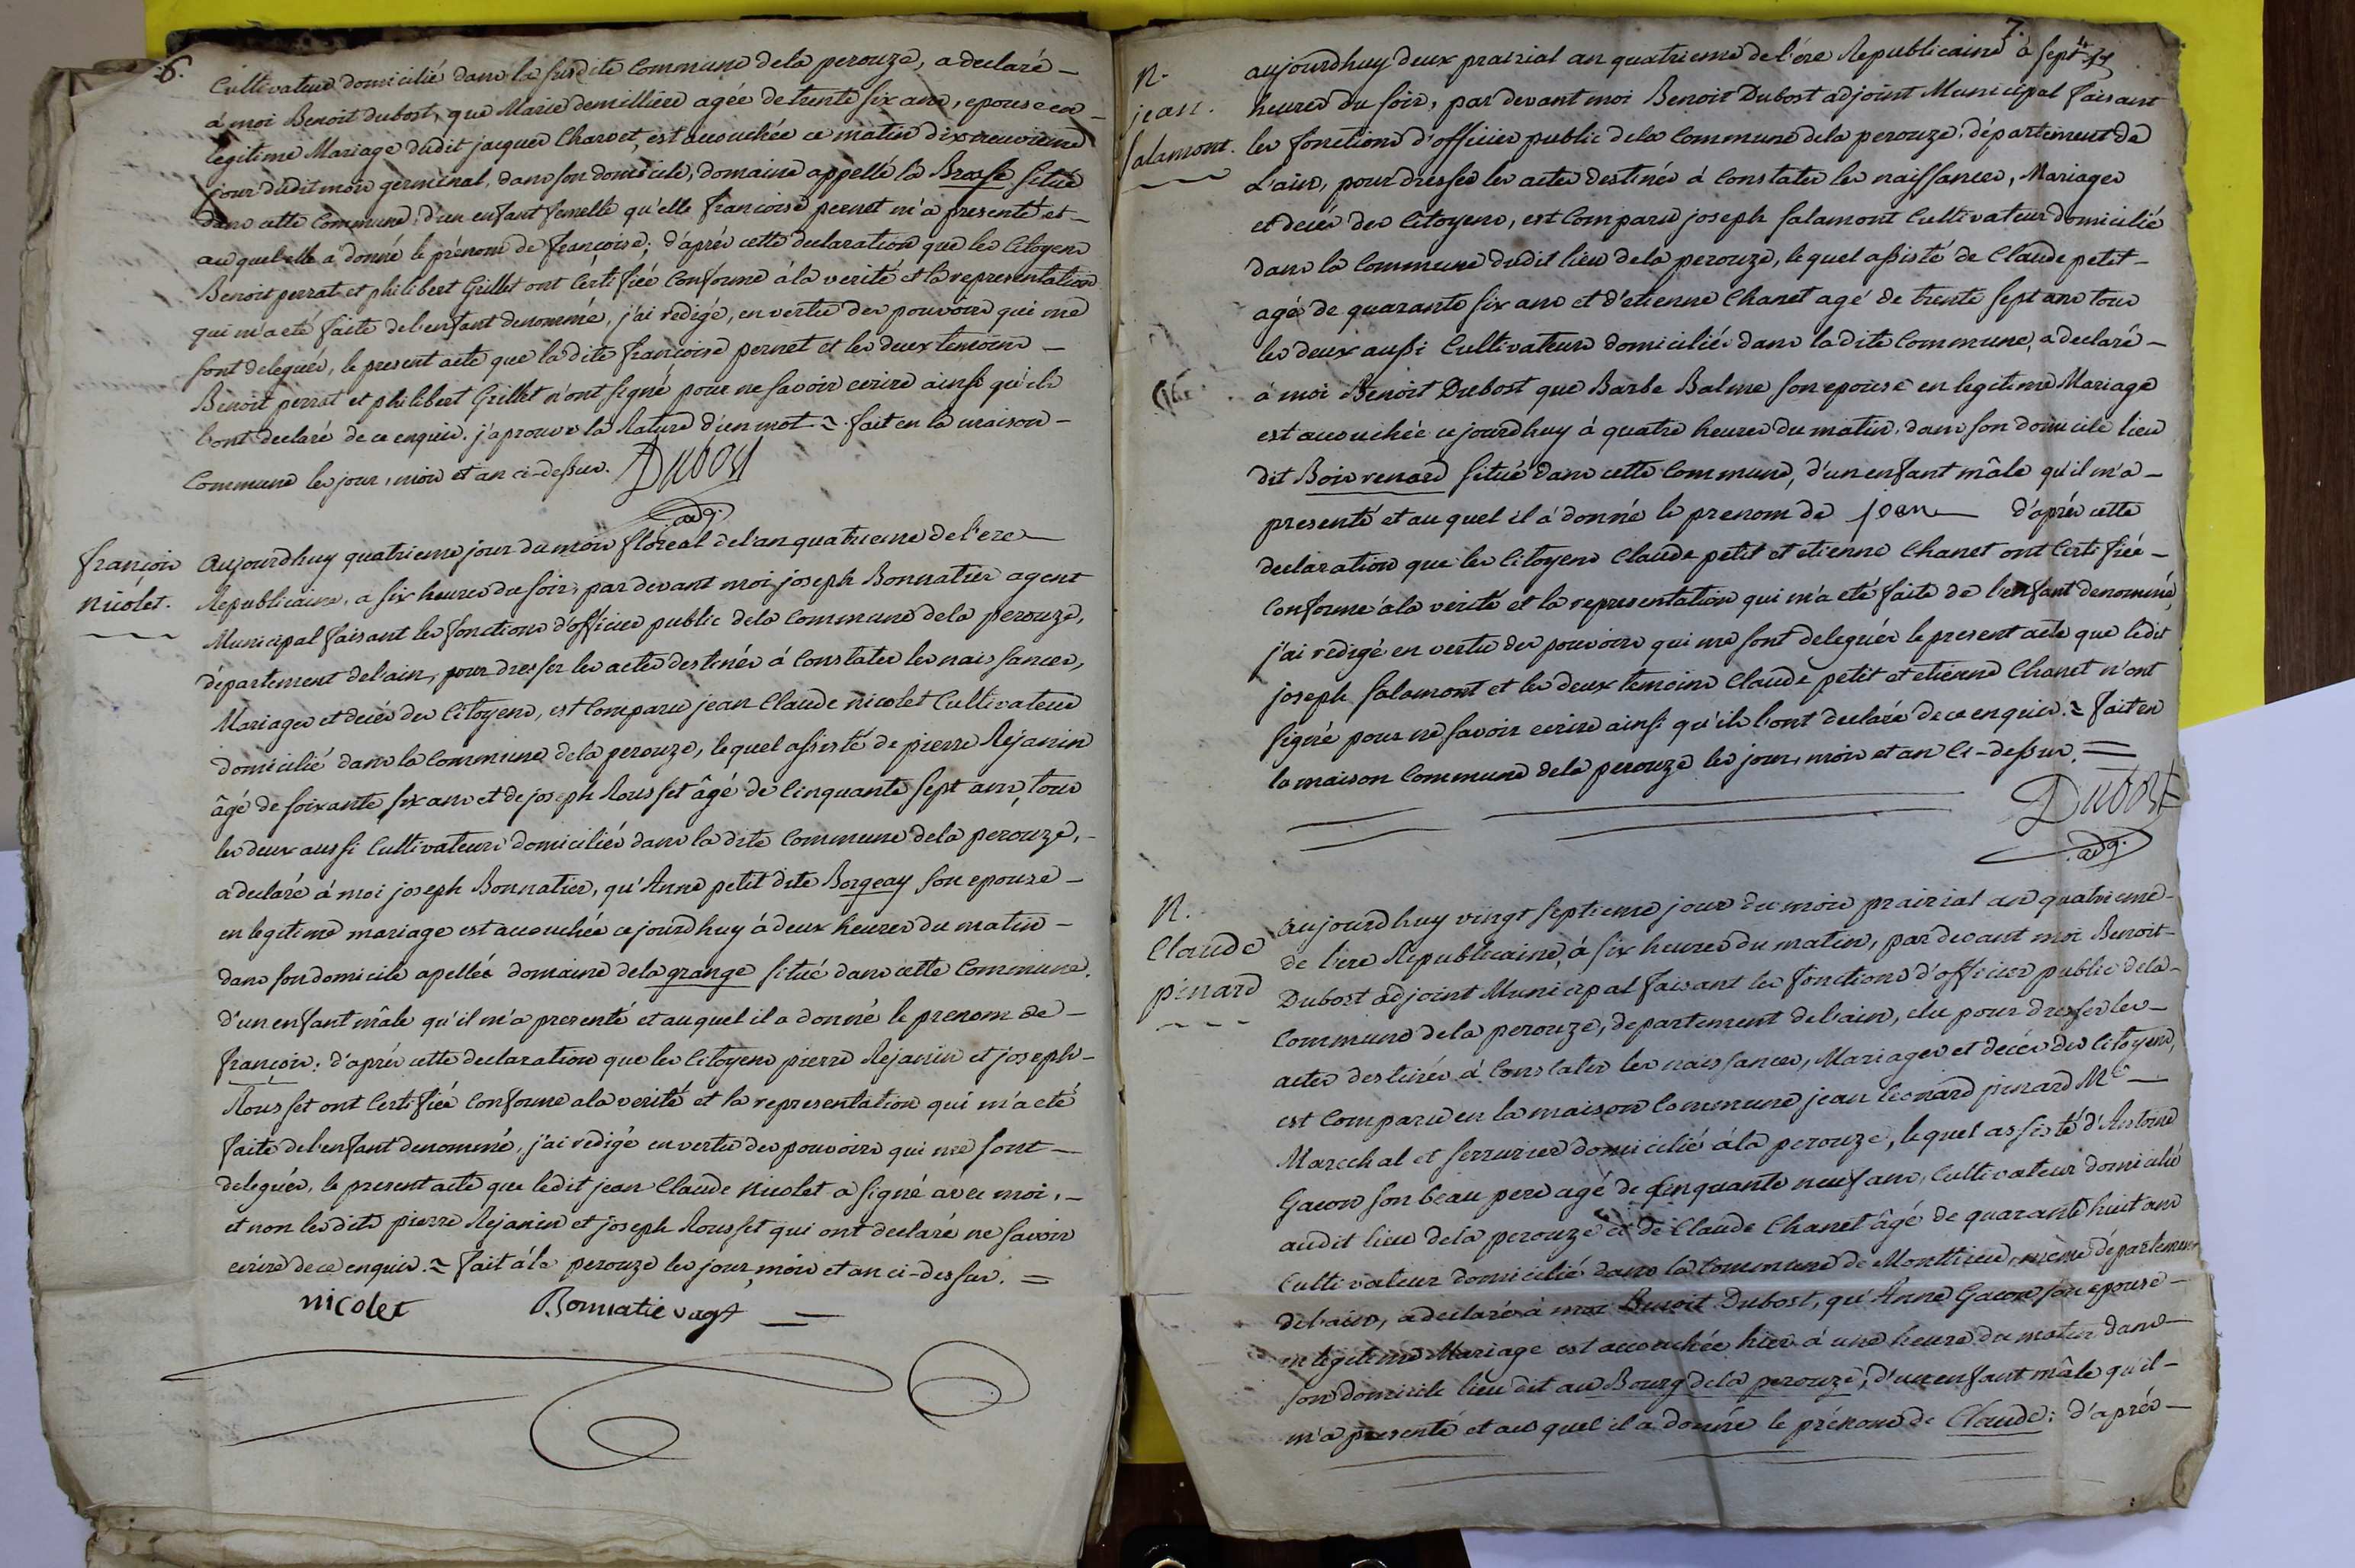 6.
Cultivateur domicilié dans la susdite commune dela perouze, a declaré –
a moi Benoit Dubost, que Marie demilliere agée de trente six ans, epouse en –
legitime Mariage dudit jacques Charvet, est acouchée ce matin dix neuvieme
jour dudit mois germinal, dans son domicile, domaine appellé la Brosse situé
dans cette commune, d'un enfant femelle qu'elle francoise pernet m'a presenté et –
auquel elle a donné le prénom de francoise; d'aprés cette declaration que les Citoyens
Benoit perrat et philibert Grillet ont certifiée conforme à la verité et la representation
qui m'a eté faite de l'enfant denommé, j'ai redigé, en vertu des pouvoirs qui me
sont delegués, le present acte que ladite francoise pernet et les deux temoins –
Benoit perrat et philibert Grillet n'ont signé pour ne savoir ecrire ainsi qu'ils
l'ont declaré de ce enquis. j'aprouve la Rature d'un mot = fait en la maison –
Commune les jour, mois et an ci-dessus. Dubost
adj.
françois
nicolet.
Aujourdhuy quatrieme jour du mois floreal del'an quatrieme de l'ere
Republicaine, a six heures du soir, par devant moi joseph Bonnatier agent
Municipal faisant les fonctions d'officier public dela commune dela perouze,
département del'ain, pour dresser les actes destinés à constater les naissances,
Mariages et decés des Citoyens, est comparu jean Claude nicolet Cultivateur
domicilié dans la commune dela perouze, lequel assisté de pierre Rejanin
âgé de soixante six ans et de joseph Rousset âgé de cinquante sept ans, tous
les deux aussi Cultivateurs domiciliés dans la dite commune dela perouze, –
a declaré à moi joseph Bonnatier, qu'Anne petit dite Borgeay son epouse –
en legitime mariage est acouchée cejourdhuy à deux heures du matin –
dans son domicile apellée domaine dela grange situé dans cette commune.
d'un enfant mâle qu'il m'a presenté et auquel il a donné le prenom de –
françois: d'aprés cette declaration que les Citoyens pierre Rejanin et joseph –
Rousset ont certifiée conforme ala verité et la representation qui m'a eté
faite del'enfant denommé, j'ai redigé en vertu des pouvoirs qui me sont –
delegués, le present acte que ledit jean Claude nicolet a signé avec moi, –
et non lesdits pierre Rejanin et joseph Rousset qui ont declaré ne savoir
ecrire de ce enquis. = fait à la perouze les jour, mois et an ci-dessus. =
nicolet Bonnatier agt
7.
N.
jean.
Salamont.
aujourdhuy deux prairial an quatrieme de l'ére Republicaine à sept
heures du soir, par devant moi Benoit Dubost adjoint Municipal faisant
les fonctions d'officier public dela commune dela perouze, département de
L'ain, pour dresser les actes destinés à constater les naissances, Mariages
et decés des Citoyens, est comparu joseph salamont Cultivateur domicilié
dans la commune dudit lieu dela perouze, lequel assisté de Claude petit –
agé de quarante six ans et d'etienne Chanet agé de trente sept ans tous
les deux aussi Cultivateurs domiciliés dans ladite commune, a declaré –
à moi Benoit Dubost que Barbe Balme son epouse en legitime Mariage
est acouchée cejourdhuy à quatre heures du matin, dans son domicile lieu
dit Bois renard situé dans cette commune, d'un enfant mâle qu'il m'a –
presenté et auquel il a donné le prenom de jean d'aprés cette
declaration que les Citoyens Claude petit et etienne Chanet ont certifiée –
conforme à la verité et la representation qui m'a eté faite de l'enfant denommé,
j'ai redigé en vertu des pouvoirs qui me sont delegués le present acte que ledit
joseph salamont et les deux temoins Claude petit et etienne Chanet n'ont
signé pour ne savoir ecrire ainsi qu'ils l'ont declaré de ce enquis. = fait en
la maison commune dela perouze les jour, mois et an ci-dessus. =
Dubost
adj.
N.
Claude
pinard
aujourdhuy vingt septieme jour du mois prairial an quatrieme –
de l'ere Republicaine, à six heures du matin, par devant moi Benoit –
Dubost adjoint Municipal faisant les fonctions d'officier public dela –
commune dela perouze, departement del'ain, elu pour dresser les –
actes destinés à constater les naissances, Mariages et decés des Citoyens,
est comparu en la maison commune jean leonard pinard Me –
Marechal et serrurier domicilié à la perouze, lequel assisté d'Antoine
Gacon son beau pere agé de cinquante neuf ans, Cultivateur domicilié
audit lieu dela perouze et de Claude Chanet âgé de quarante huit ans
Cultivateur domicilié dans la commune de Montlieu, même département
del'ain, a declaré à moi Benoit Dubost, qu'Anne Gacon son epouse –
en legitime Mariage est acouchée hier à une heure du matin dans –
son domicile lieu dit au Bourg dela perouze, d'un enfant mâle qu'il –
m'a presenté et auquel il a donné le prénom de Claude: d'aprés –